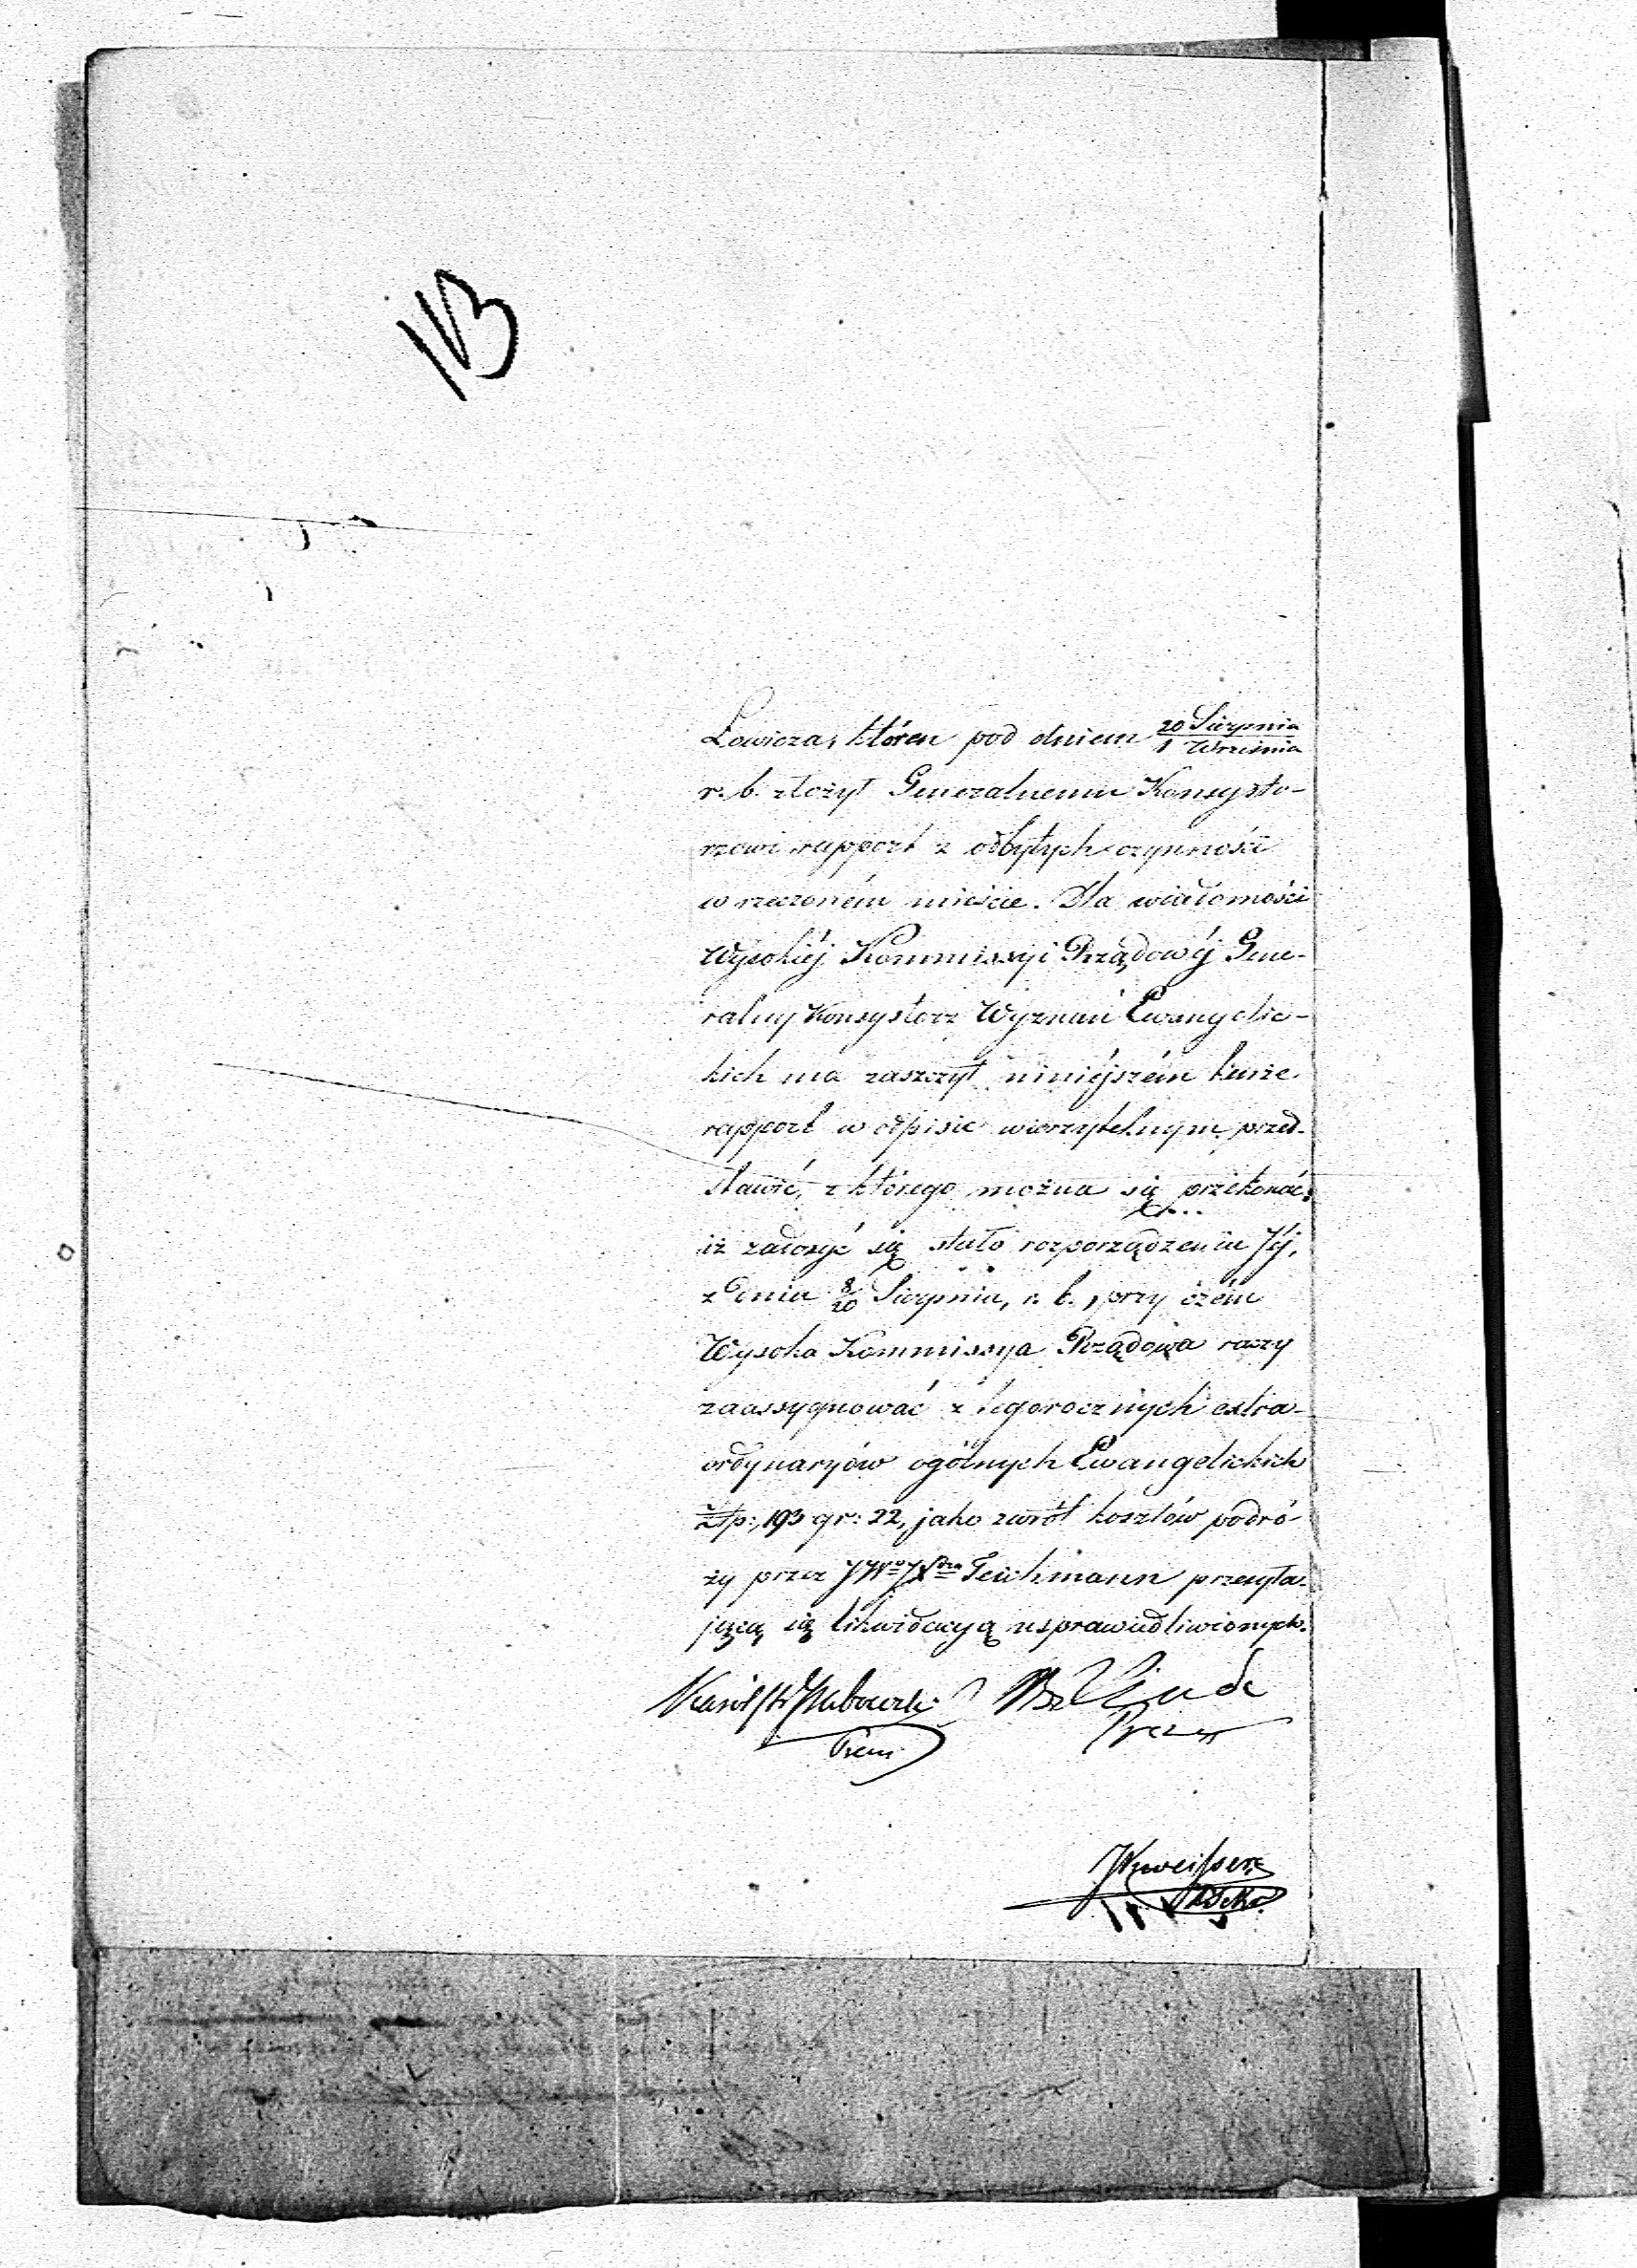 113
Łowicza, któren pod dniem 20 Sierpnia / 1 Września
r. b. złożył Generalnemu Konsysto-
rzowi rapport z odbytych czynności
w rzeczoném mieście. Dla wiadomości
Wysokiéj Kommissyi Rządowéj Gene-
ralny Konsystorz Wyznań Ewangelic-
kich ma zaszczyt niniéjszém tenże
rapport w odpisie wierzytelnym przed-
stawić, z którego można się przekonać,
iż zadosyć się stało rozporządzeniu Jéj,
z dnia 8/20 Sierpnia, r. b., przy czém
Wysoka Kommissya Rządowa raczy
zaassygnować z tegorocznych extra-
ordynaryów ogólnych Ewangelickich
Złp: 193 gr: 22, jako zwrót kosztów podró-
ży przez JWo JXdza Teichmann przesyła-
jącą się likwidacyą usprawiedliwionych.
Prezes